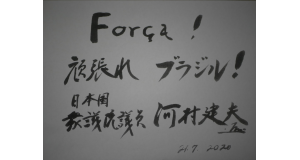 Força!
頑張れ ブラジル!
日本国
衆議院議員 河村建夫
21.7.2020